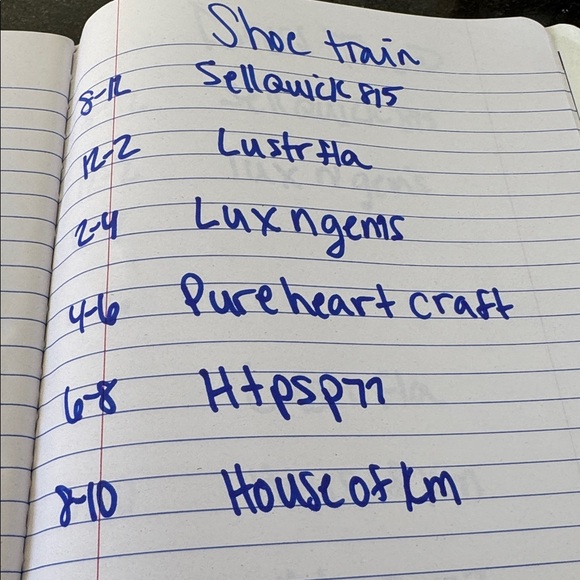 Shoe train
8-12 Sellquick 815
12-2 Lustrfla
2-4 Luxngems
4-6 Pureheart craft
6-8 Htpsp77
8-10 House of Km